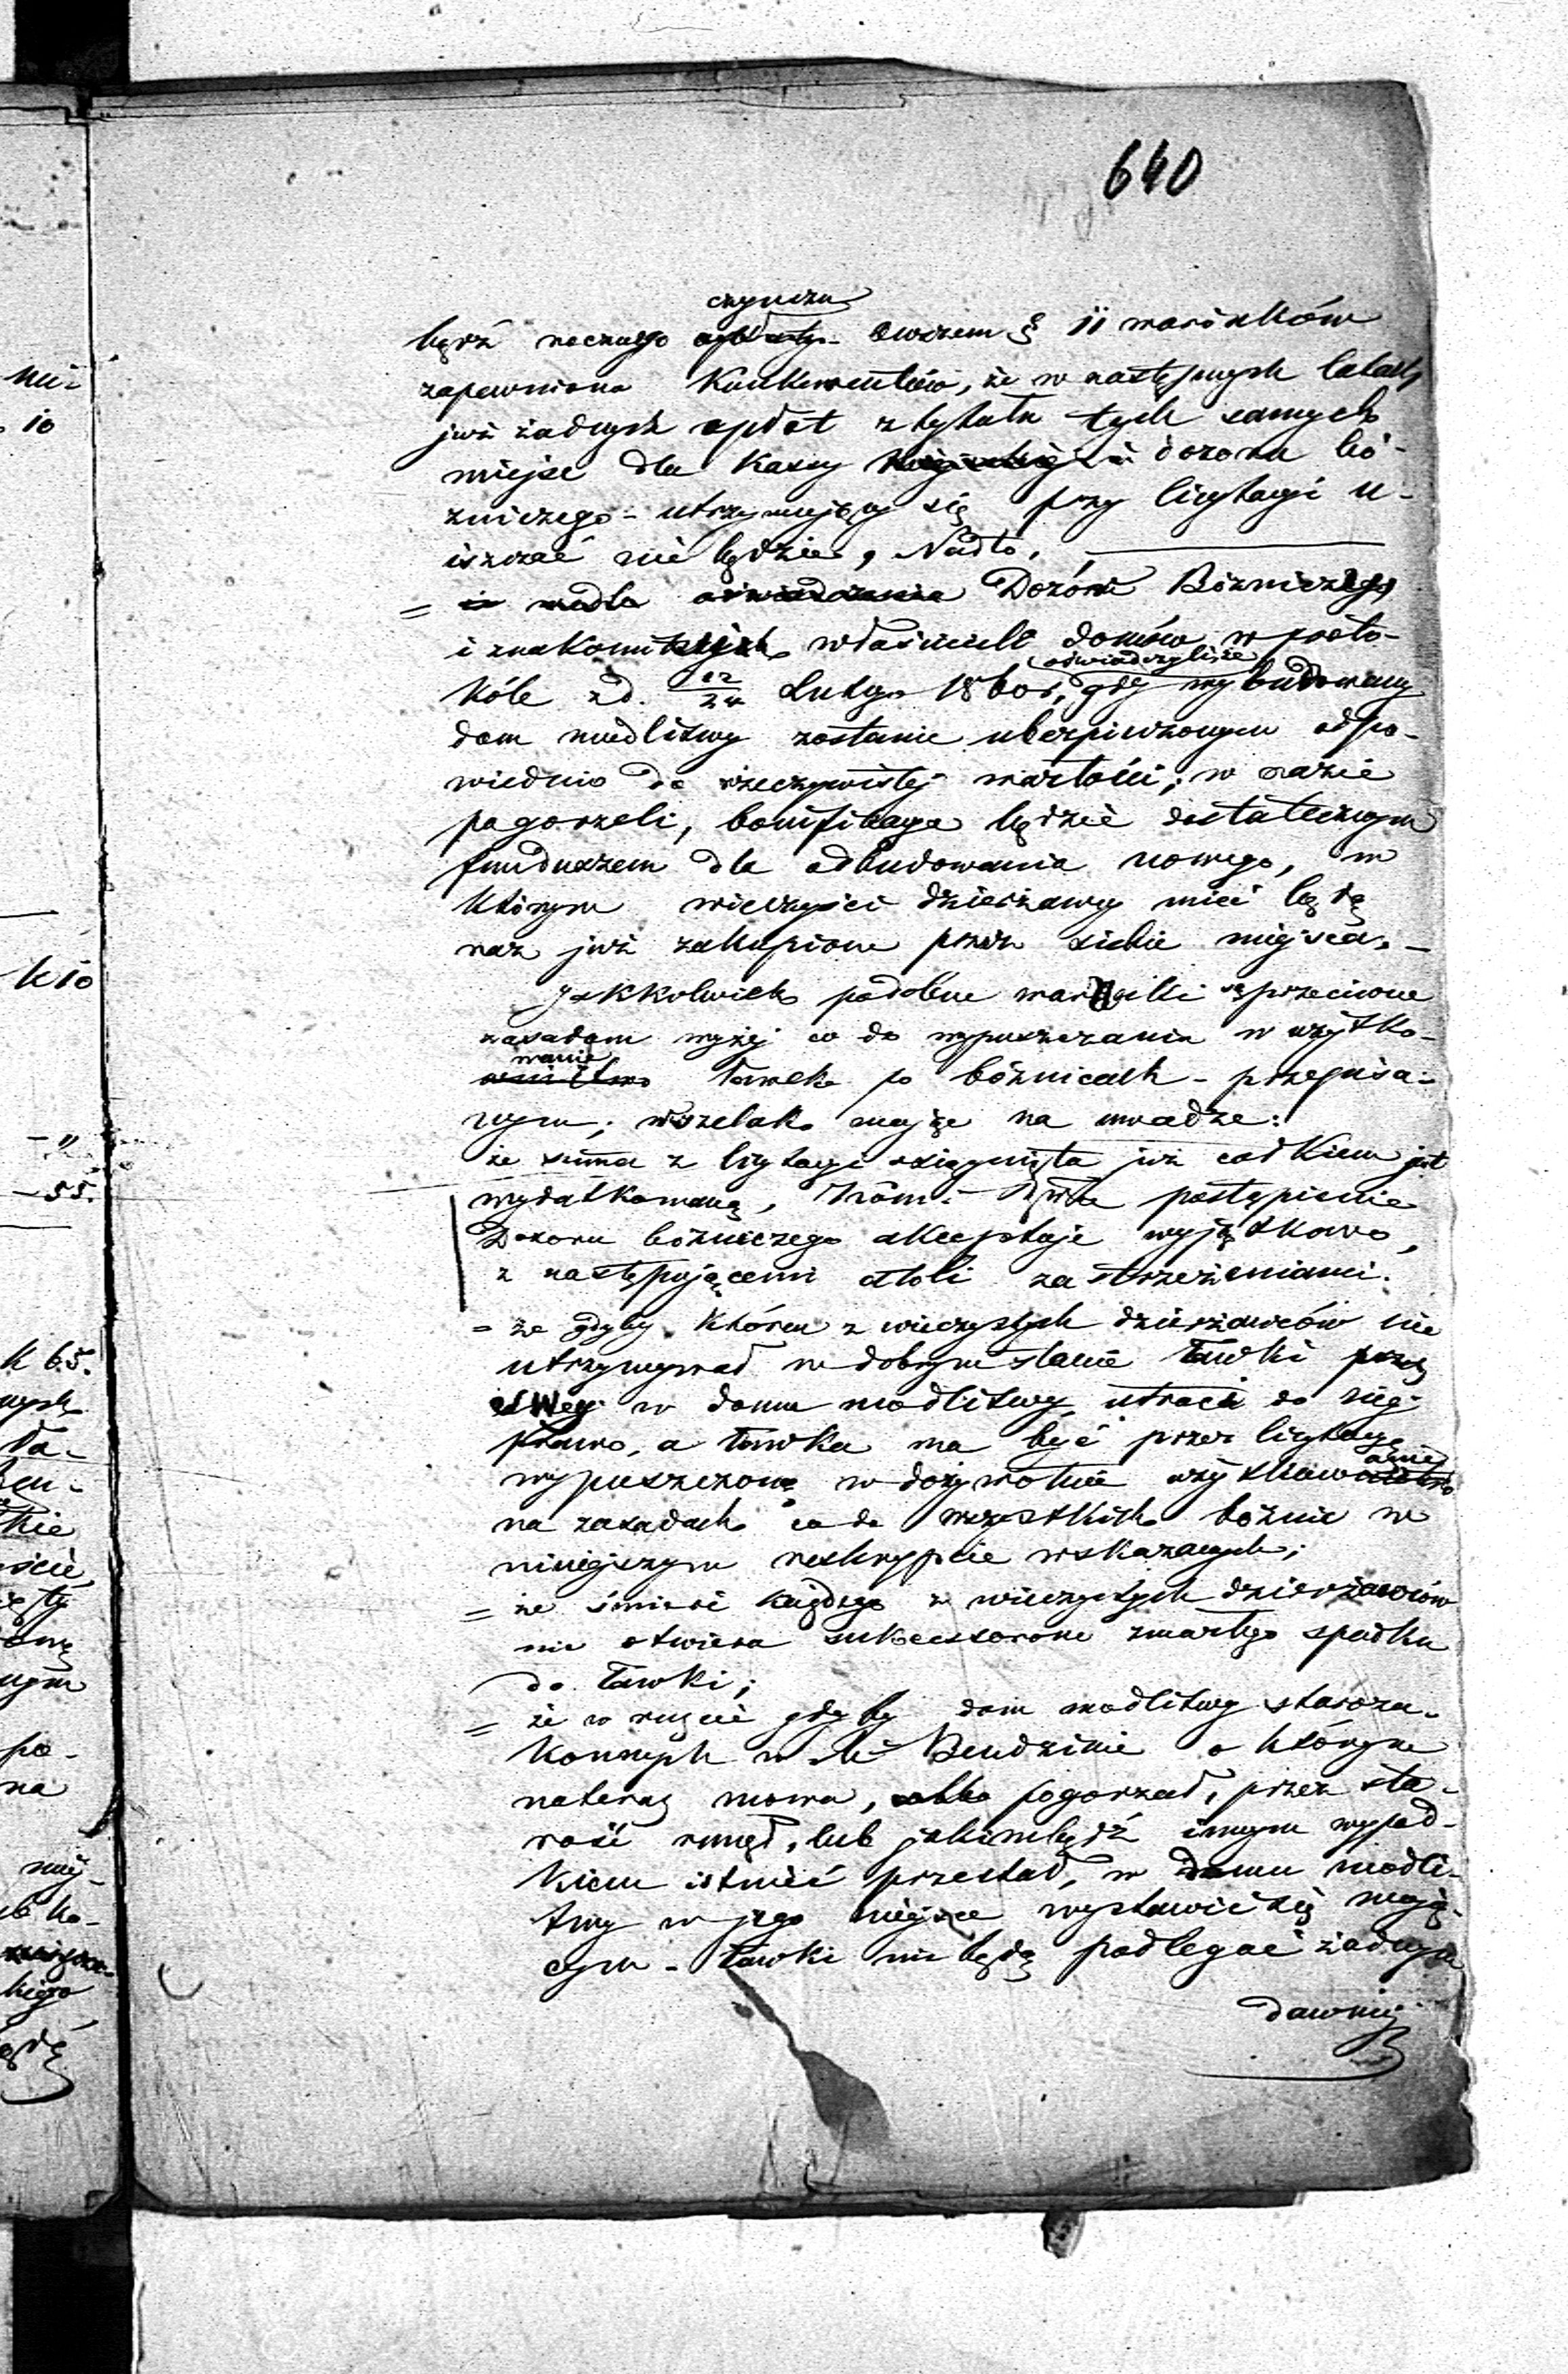 640
czynszu
bądź rocznego opłaty owszem § 11 warunków
zapewniono Konkurentów, że w następnych latach,
już żadnych opłat z tytułu tych samych
miejsc dla Kassy dozoru bó-
żniczego - utrzymujący się przy licytacyi u-
iszczać nie będzie, Nadto,
= Dozór Bóżniczego
i znakomitszych właścicieli domów w proto-
oświadczyli że
kóle z d. 12/24 Lutego 1860 r, gdy wybudowany
dom modlitwy zostanie ubezpieczonym odpo-
wiednio do rzeczywistej wartości; w razie
pogorzeli, bonifikacya będzie dostatecznym
funduszem dla odbudowania nowego, w
którym wieczyści dzierżawcy mieć będą
raz już zakupione przez siebie miejsca. -
Jakkolwiek podobne warunki są przeciwne
zasadom wyżej co do wypuszczania w użytko-
wanie
ławek po bóżnicach - przepisa-
nym; wszelako mając na uwadze:
że summa z licytacyi osiągnięta już całkiem jest
wydatkowaną, postąpienie
Dozoru bóżniczego akceptuje wyjątkowo,
z następującemi atoli zastrzeżeniami.
= że gdyby który z wieczystych dzierżawców nie
utrzymywał w dobrym stanie ławki
swej w domu modlitwy, utraca do niej
prawo, a ławka ma być przez licytacyę
wypuszczoną w dożywotnie użytkowanie
na zasadach co do wszystkich bóżnic w
niniejszym reskrypcie wskazanych;
= że śmierć każdego z wieczystych dzierżawców
nie otwiera sukcessorom zmarłego spadku
do ławki;
= że w razie gdyby dom modlitwy staroza-
konnych w M. Bendzinie o którym
na teraz mowa, albo pogorzał, przez sta-
rość runął, lub jakimbądź innym wypad-
kiem istnieć przestał, w domu modli-
twy w jego miejsce wystawić się mają-
cym - ławki nie będą podlegać żadnym
dawniej